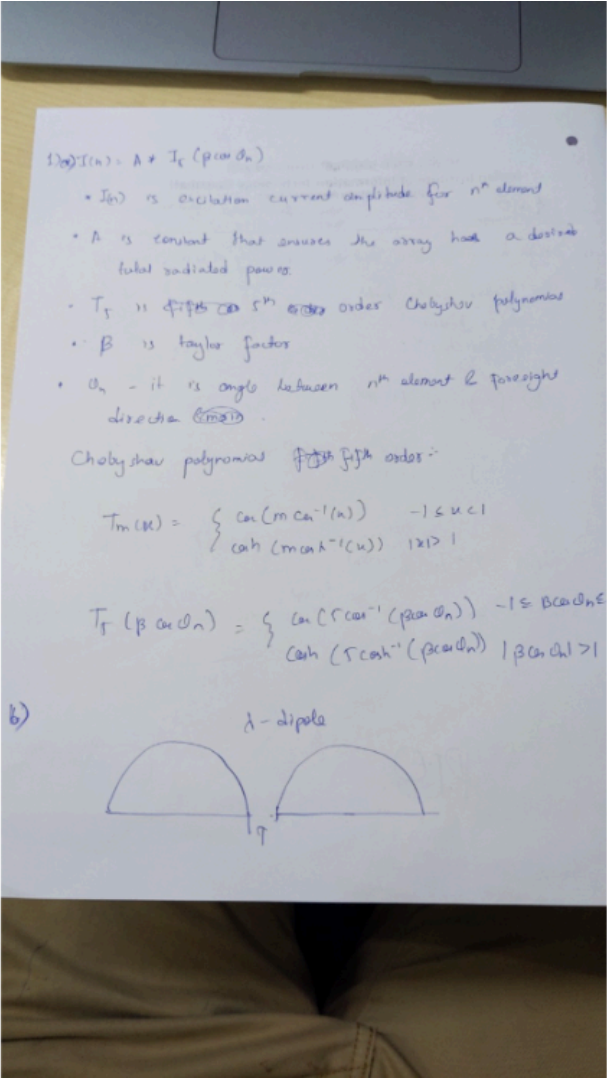 1)a) I(n) = A * T₅ (β cos θₙ)
• I(n) is excitation current amplitude for nᵗʰ element
• A is constant that ensures the array has a desired
total radiated power.
• T₅ is 5ᵗʰ order Chebyshev polynomial
• β is taylor factor
• θₙ - it is angle between nᵗʰ element &
direction
Chebyshav polynomial fifth order :-
Tm(x) = { cos (m cos⁻¹(x)) -1 ≤ x < 1
cosh (m cosh⁻¹(x)) |x| > 1
T₅ (β cos θₙ) = { cos (5 cos⁻¹ (β cos θₙ)) -1 ≤ β cos θₙ ≤
cosh (5 cosh⁻¹ (β cos θₙ)) |β cos θₙ| > 1
b)
λ - dipole